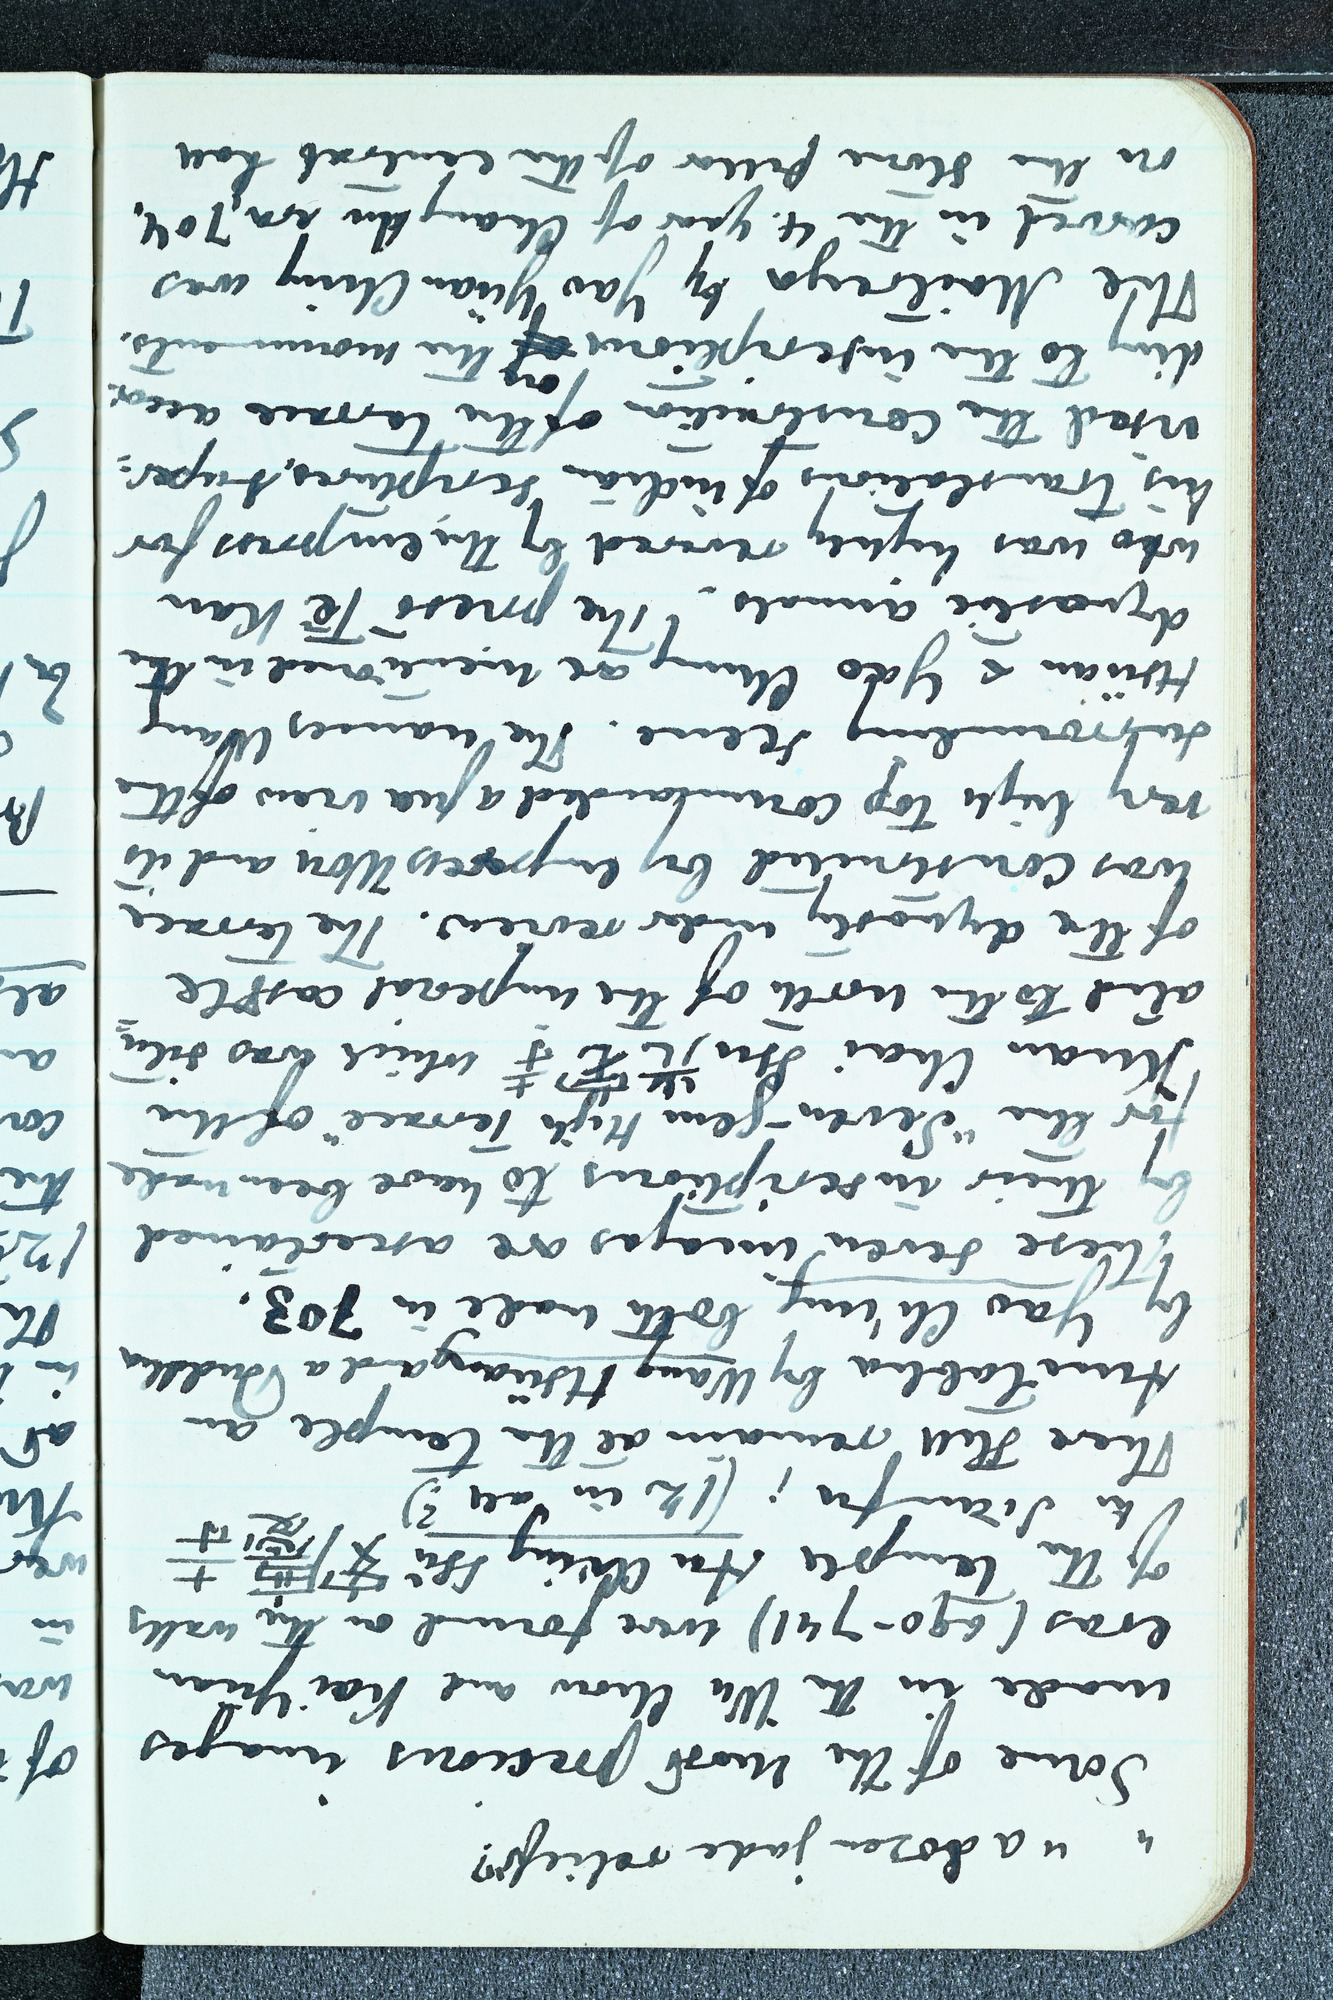 " " a dozen jade reliefs"?
Some of the most precious images
made in the Wu Chou and Kai Yüan
eras (690-741) were found on the walls
of the temple An Ch'ing Ssŭ 寺
in Sianfu; (12 in all?)
There still remain at the temple an
Amitabha by Wang Hsüan, and a Buddha
by Yao Ch'ing, both made in 703.
These seven images are ascertained
by their inscriptions to have been made
for the "Seven-Gem High Terrace" of the
Kuan Chai Ssu 光宅寺 which was situ=
ated to the north of the imperial castle
of the dynasty under review. The terrace
was constructed by Empress Wou and its
very high top commanded a fine view of the
surrounding scene. The names Wang
Hsüan & Yao Ching are mentioned in the
dynastic annals. The priest Tê Kan
who was highly revered by the empress for
his translations of indian scriptures, super=
vised the construction of the terrace accor-
ding to the inscriptions on the monuments.
The Maitreya by Yao Yüan Ching was
carved in the 4. year of Chang An era, 704,
on the stone pillar of the central hall